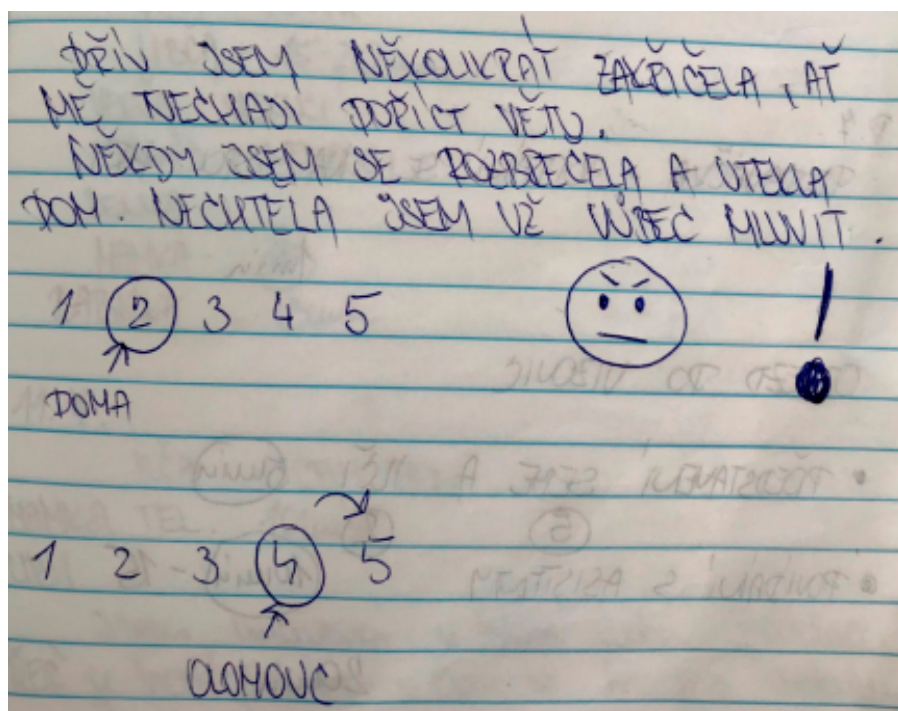 DŘÍV JSEM NĚKOLIKRÁT ZAKŘIČELA, AŤ
MĚ NECHAJI DOŘÍCT VĚTU.
NĚKDY JSEM SE ROZBREČELA A UTEKLA
DOM. NECHTELA JSEM UŽ VŮBEC MLUVIT.
1 2 3 4 5
!
DOMA
1 2 3 4 5
OLOMOUC